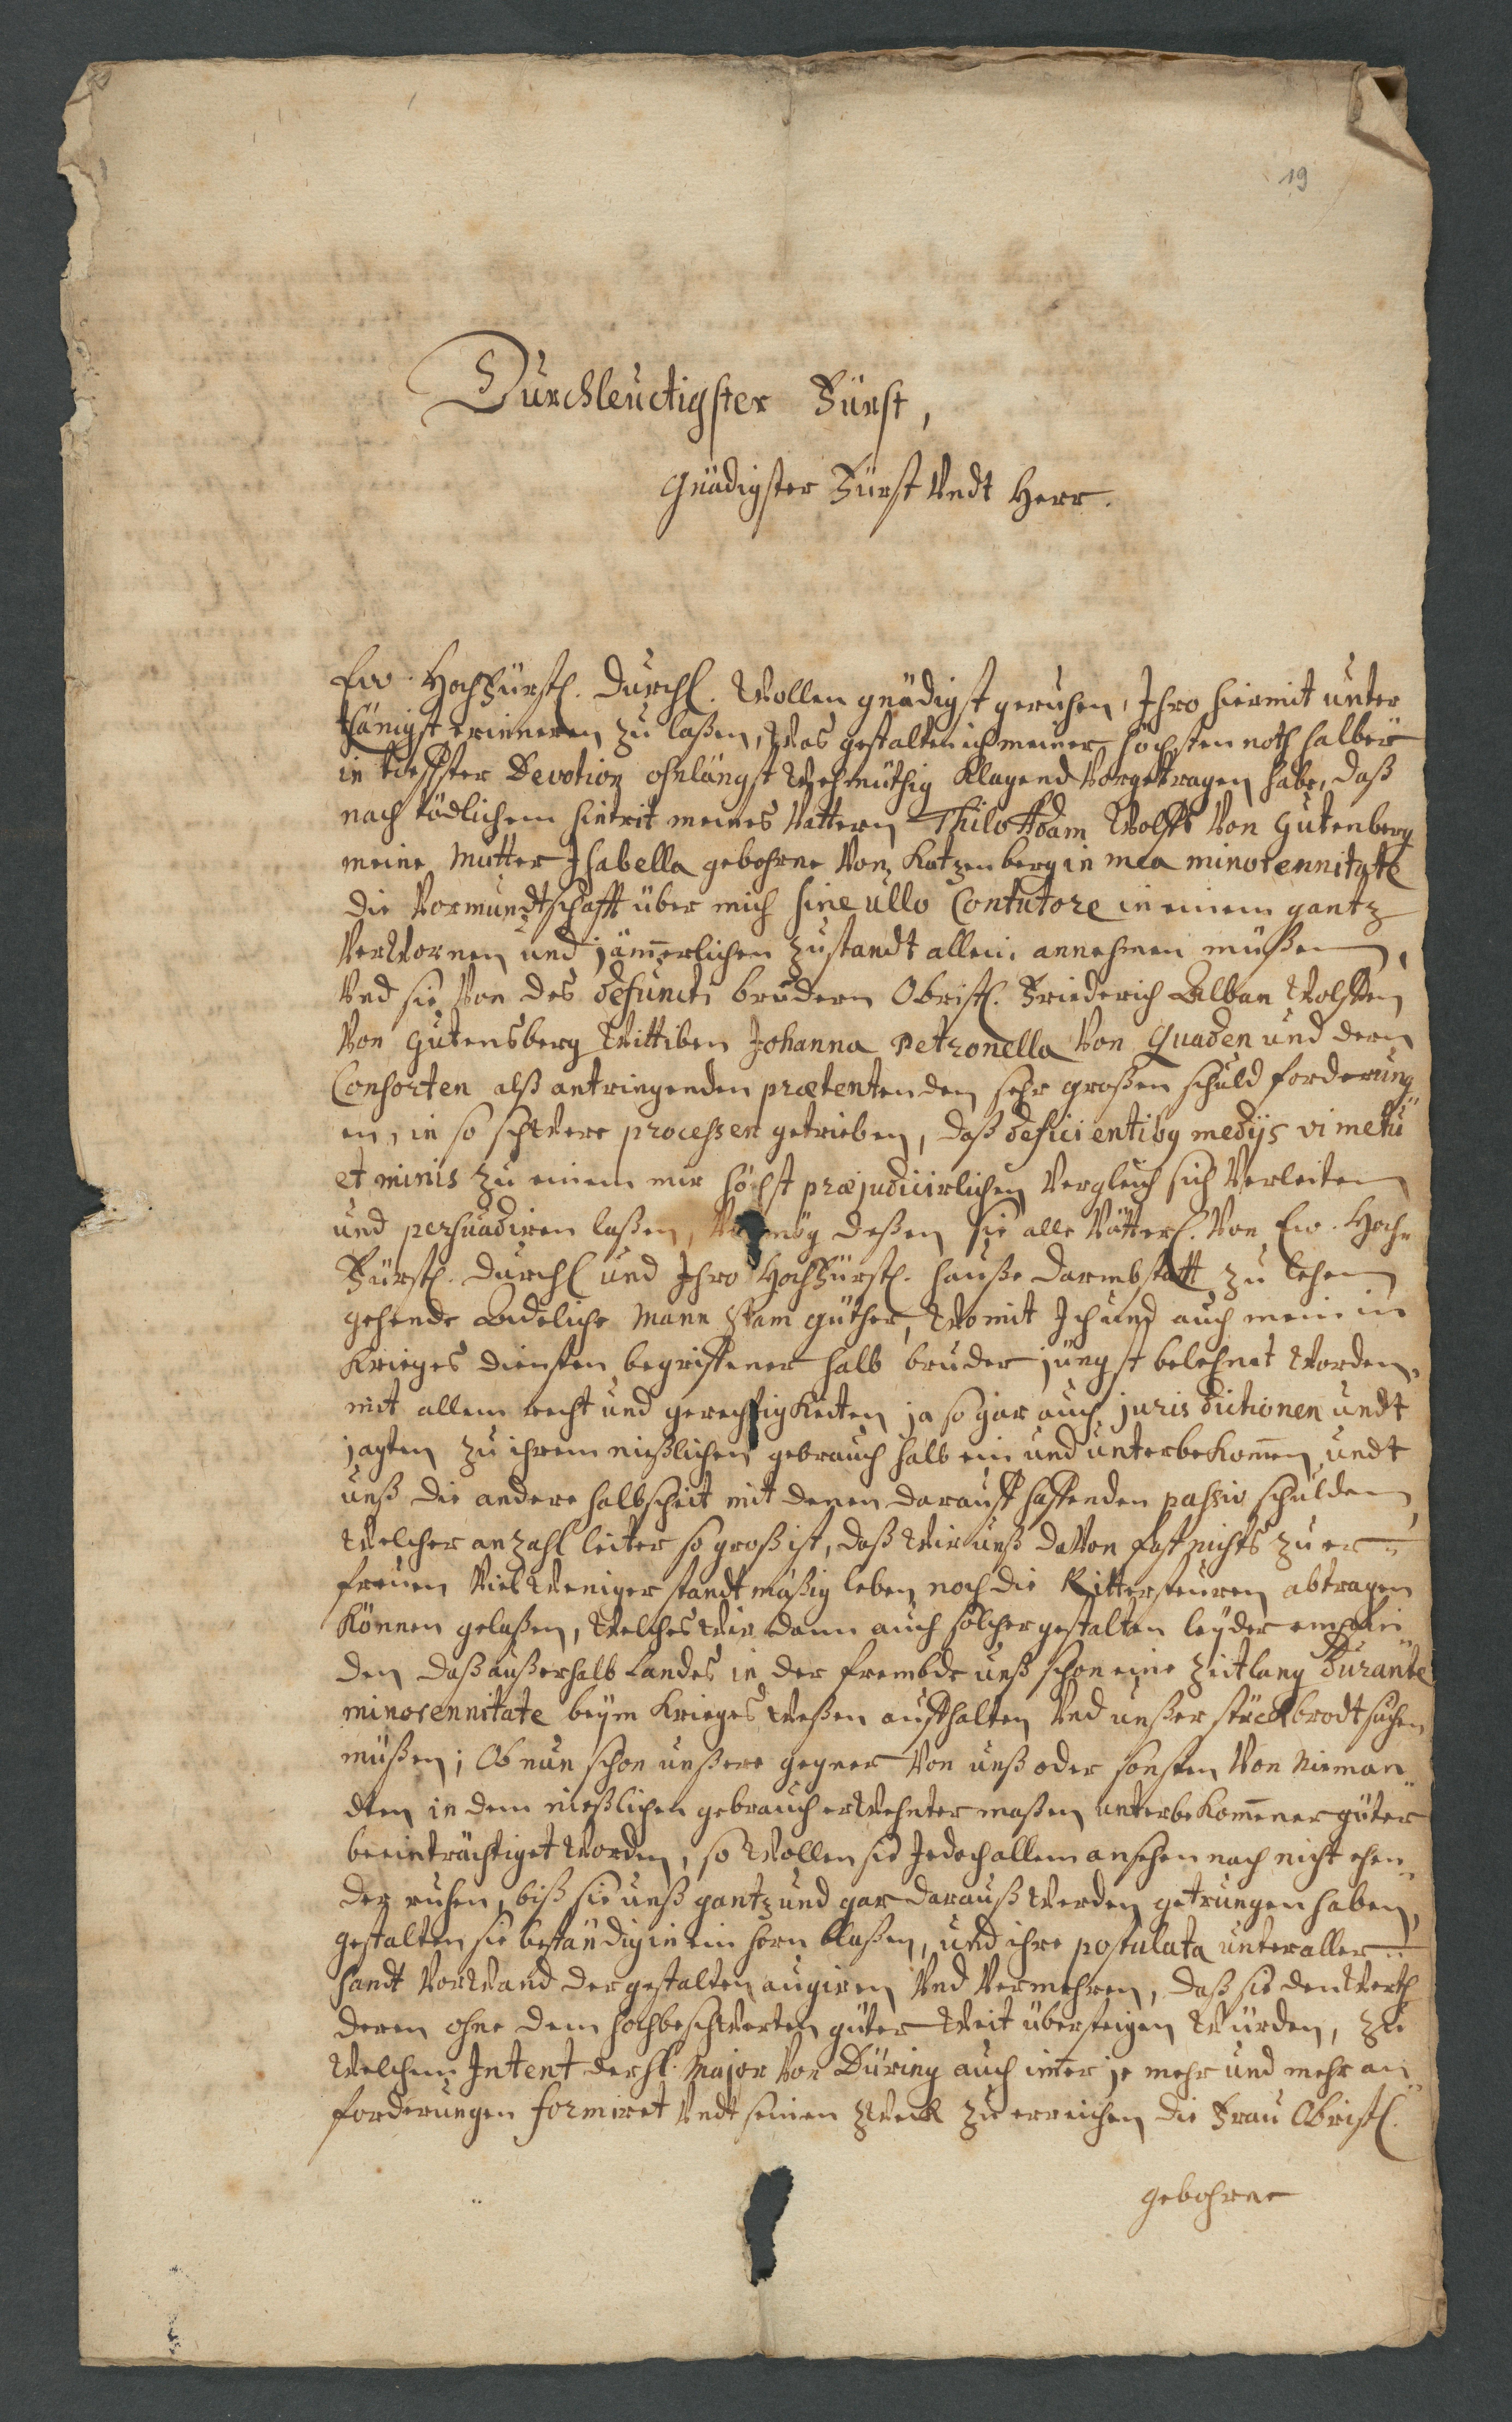 19
Durchleuctigster Fürst,
Gnädigster Fürst Undt Herr.
Ew. HochFürstl. Durchl. Wollen gnädigst geruhen, Ihro hiermit unter
thänigst erinneren zu laßen, Was gestalten ich meiner höchsten noth halber
in tieffster Devotion ohnlängst Wehmüthig klagend Vorgetragen habe, daß
nach tödlichem hintrit meines Vattern Thilo Adam Wolffs Von Gutenberg
meine Mutter Isabella gebohrne Von Katzenberg in mea minorennitate
die Vormundtschafft über mich sine ullo Contutore in einem gantz
VerWornen und jämerlichen zustandt allein annehmen müßen,
Und sie Von des defuncti brudern Obristl. Friederich Alban Wolffen
Von Gutensberg Wittiben Johanna Petronella Von Quaden und dern
Consorten alß antringenden prætentenden sehr großen schuld forderung
en, in so schWere processen getrieben, daß deficientibg medijs vi metu
et minis zu einem mir höchst præjudicirlichen Vergleich sich Verleiten
und persuadiren laßen, Vermög deßen sie alle Vätterl. Von Ew. Hoch
Fürstl. Durchl und Ihro HochFürstl. Hauße Darmbstatt zu lehen
gehende Adeliche Mann Stam güther, Womit Ich und auch mein in
Krieges diensten begriffener halb bruder jüngst belehnet Worden,
mit allem recht und gerechtigkeiten ja so gar auch jurisdictionen undt
jagten zu ihrem nießlichen gebrauch halb ein und unterbekomen, undt
unß die andere halbscheit mit denen darauff hafftenden passiv schulden,
Welcher anzahl leiter so groß ist, daß Wir unß daVon fast nichts zu er
freuen Viel Weniger standtmäßig leben noch die Rittersteuren abtragen
können gelaßen, Welches Wir dann auch solcher gestalten leyder empfin
den daß außerhalb Landes in der frembde unß schon eine Zeitlang durante
minorennitate beym Krieges Weßen auffhalten Und unßer stück brodt suchen
müßen; Ob nun schon unßere gegner Von unß oder sonsten Von nieman
dten in dem nießlichen gebrauch erWehnter maßen unterbekomener güter
beeinträchtiget Worden, so Wollen sie Jedoch allem ansehen nach nicht ehen
der ruhen, biß sie unß gantz und gar darauß Werden getrungen haben,
gestalten sie beständig in ein horn blaßen, und ihre postulata unter aller
handt VorWand dergestalten augiren Und Vermehren, daß sie den Werth
deren ohne dem hochbeschWerten güter Weit übersteigen Würden, zu
Welchem Intent der H. Major Von Düring auch imer je mehr und mehr an
forderungen formiret Undt seinen ZWeck zu erreichen die Frau Obristl.
gebohrne